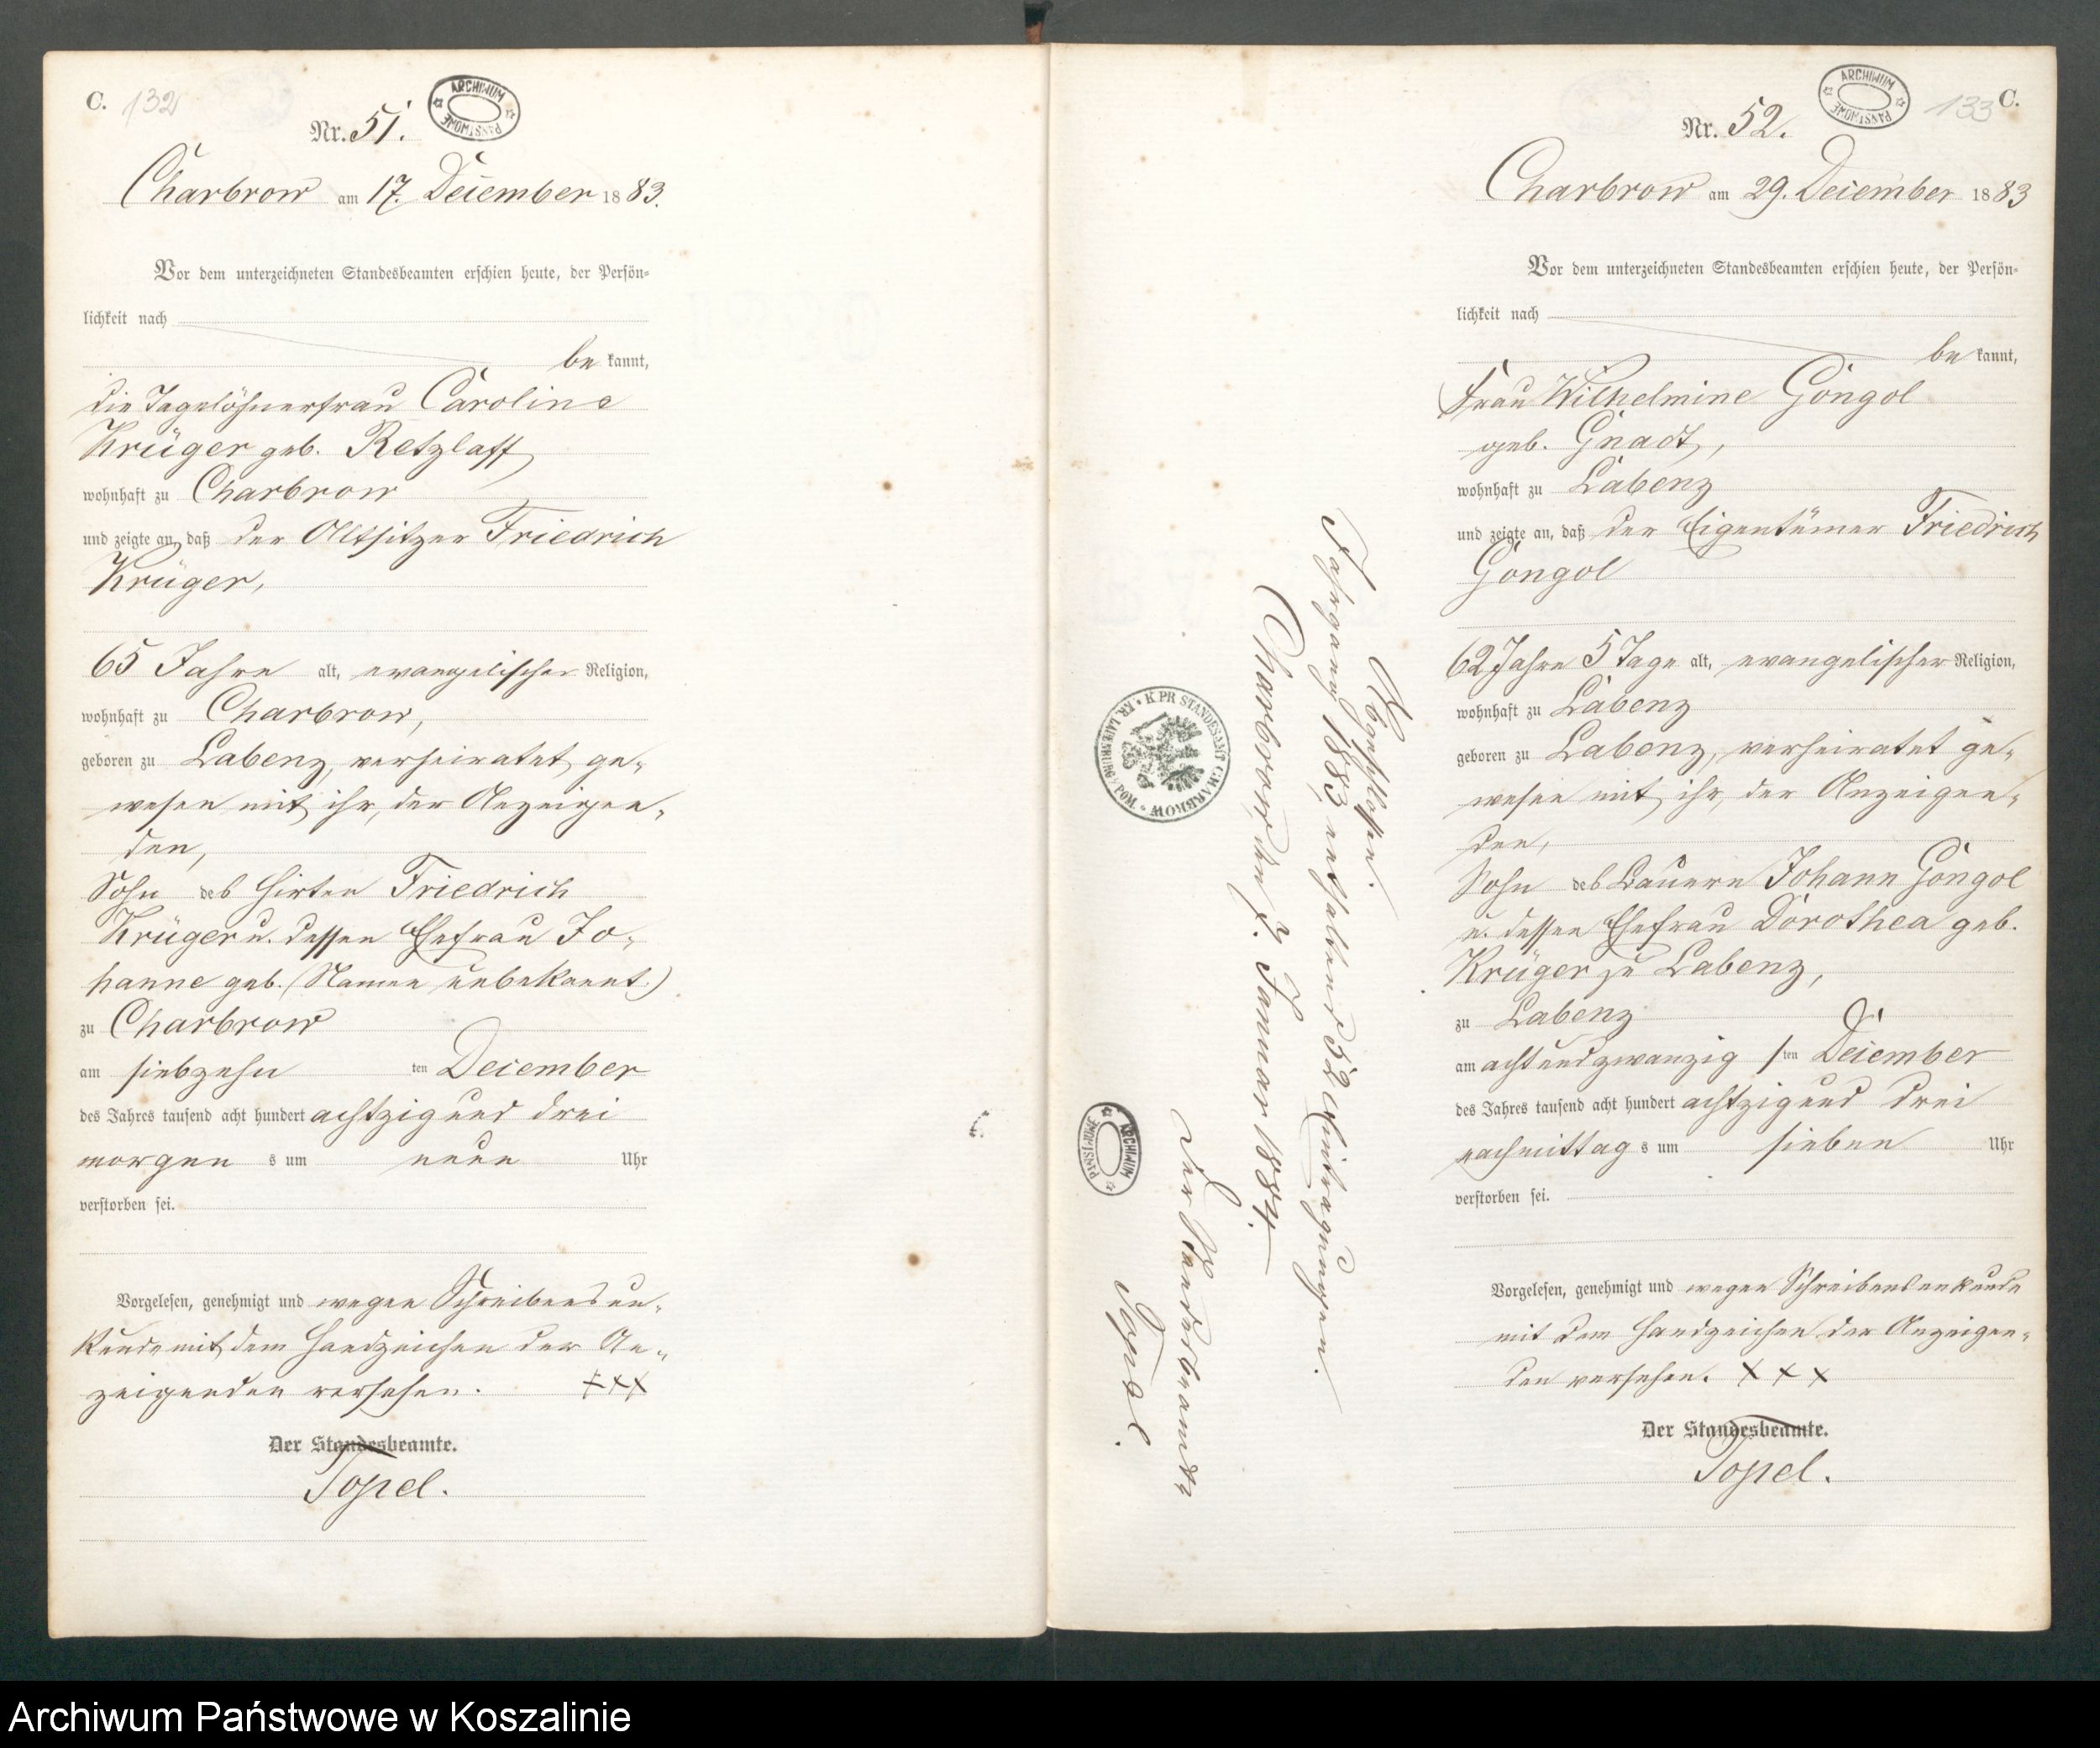 C. 132
Nr. 51.
ARCHIWUM PAŃSTWOWE
Charbrow am 17. December 1883.
Vor dem unterzeichneten Standesbeamten erschien heute, der Persön-
lichkeit nach
be kannt,
die Tagelöhnerfrau Caroline
Krüger geb. Retzlaff
wohnhaft zu Charbrow
und zeigte an, daß der Altsitzer Friedrich
Krüger,
65 Jahre alt, evangelischer Religion,
wohnhaft zu Charbrow,
geboren zu Labenz, verheiratet ge-
wesen mit ihr, der Anzeigen-
den,
Sohn des Hirten Friedrich
Krüger u. dessen Ehefrau Jo-
hanne geb. (Namen unbekannt.)
zu Charbrow
am siebzehn ten December
des Jahres tausend acht hundert achtzig und drei
morgen s um neun Uhr
verstorben sei.
Vorgelesen, genehmigt und wegen Schreibensun-
kunde mit dem Handzeichen der An-
zeigenden versehen. +++
Der Standesbeamte.
Topel.
133 C.
Nr. 52.
ARCHIWUM PAŃSTWOWE
Charbrow am 29. December 1883
Vor dem unterzeichneten Standesbeamten erschien heute, der Persön-
lichkeit nach
be kannt,
Frau Wilhelmine Gongol
geb. Gnadt,
wohnhaft zu Labenz
und zeigte an, daß der Eigentümer Friedrich
Gongol
62 Jahre 5 Tage alt, evangelischer Religion,
wohnhaft zu Labenz
geboren zu Labenz, verheiratet ge-
wesen mit ihr, der Anzeigen-
den,
Sohn des Bauern Johann Gongol
u. dessen Ehefrau Dorothea geb.
Krüger zu Labenz,
zu Labenz
am acht und zwanzig s ten December
des Jahres tausend acht hundert achtzig und drei
nachmittag s um sieben Uhr
verstorben sei.
Vorgelesen, genehmigt und wegen Schreibensunkunde
mit dem Handzeichen der Anzeigen-
den versehen. +++
Der Standesbeamte.
Topel.
Abgeschlossen.
Jahrgang 1883, enthaltend 52 Eintragungen.
Charbrow, den Januar 1884.
Der Standesbeamte
Topel.
K. PR. STANDESAMT CHARBROW
ARCHIWUM PAŃSTWOWE
Archiwum Państwowe w Koszalinie